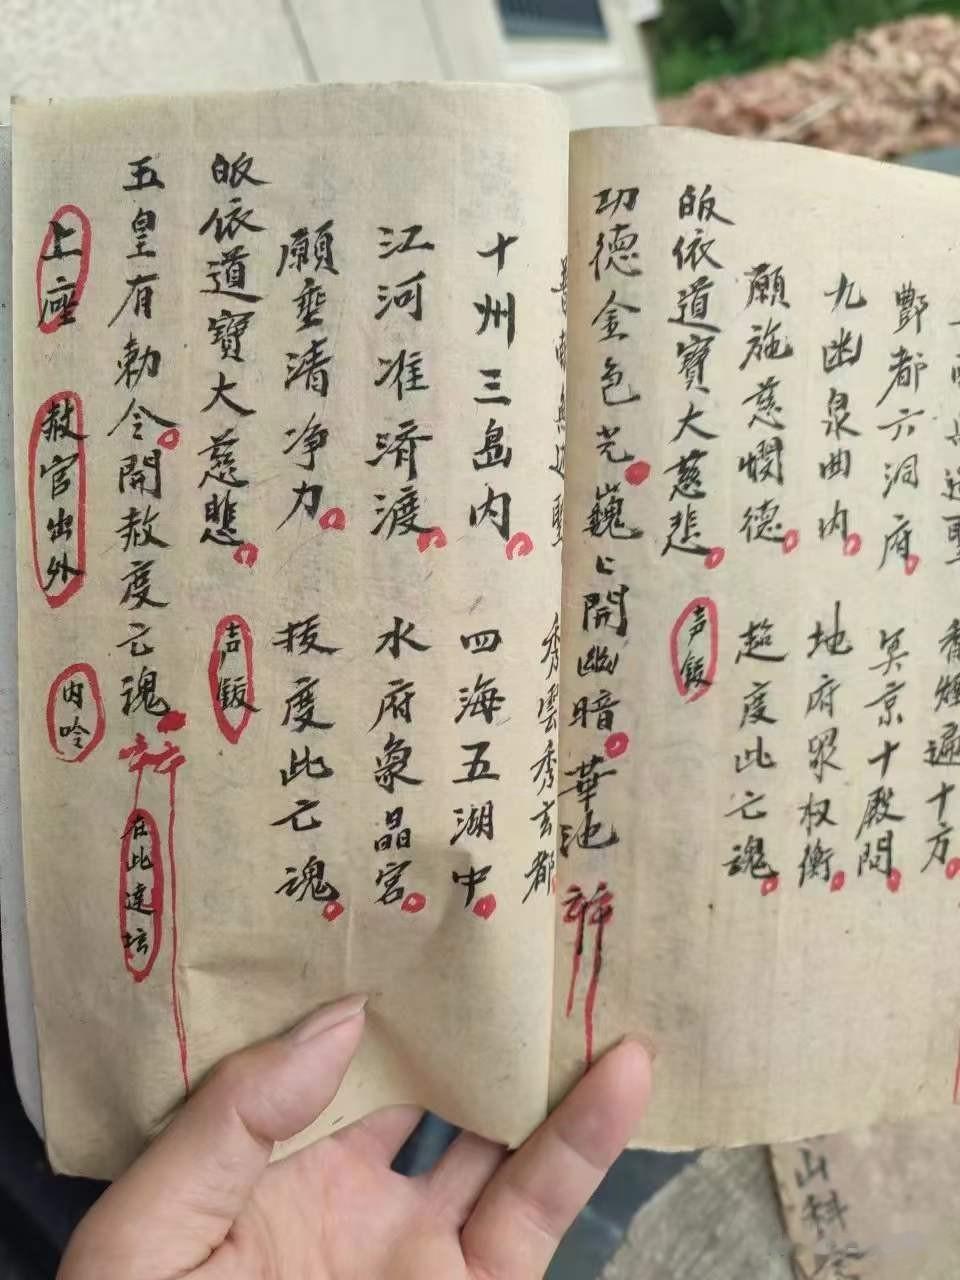 香煙遍十方
酆都六洞府 冥京十殿閰
九幽泉曲内 地府眾权衡
願施慈憫德 超度此亡魂
皈依道寶大慈悲 声鈸
功德金色光巍〻開幽暗華池
秀雲秀玄都
十州三島内 四海五湖中
江河准济渡 水府裊晶宮
願垂清净力 拔度此亡魂
皈依道寶大慈悲 声鈸
五皇有勅令開赦度亡魂 在此達坛
上座 赦官出外 内吟
山科